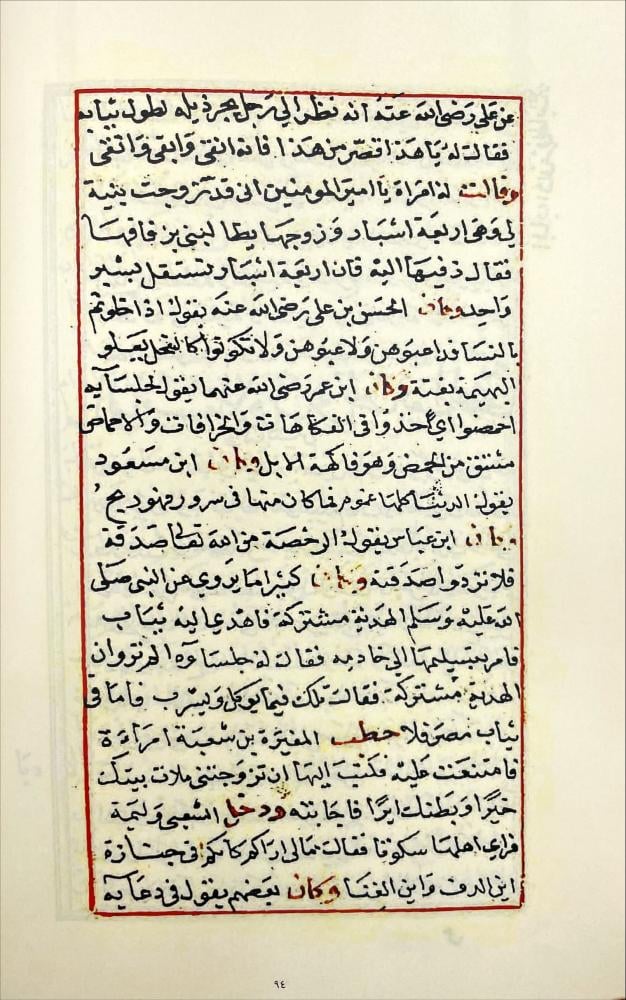 عن علي رضى الله عنه انه نظر الي رجل يجر ذيله لطول ثيابه
فقال له يا هذا قصر من هذا فانه انقى وابقى واتقى
وقالت له امراة يا امير المومنين انى قد تزوجت بنية
لي وهى اربعة اشبار وزوجها يطالبنى بزفافها
فقال زفيها اليه فان اربعة اشبار تستقل بشبر
واحد وكان الحسن بن على رضى الله عنه يقول اذا خلوتم
بالنسا فداعبوهن ولاعبوهن ولا تكونوا كالفحل يعلو
البهيمة بغتة وكان ابن عمر رضى الله عنهما يقول لجلسآيه
احمضوا اي خذوا فى الفكاهات والخرافات والاحماض
مشتق من الحمض وهو فاكهة الابل وكان ابن مسعود
يقول الدنيا كلها غموم فما كان منها فى سرور فهو ربح
وكان ابن عباس يقول الرخصة من الله تعالى صدقة
فلا تردوا صدقته وكان كثيرا ما يروي عن النبى صلى
الله عليه وسلم الهدية مشتركة فاهدي اليه ثياب
فامر بتسليمها الي خادمه فقال له جلساوه الم ترو ان
الهدية مشتركة فقال تلك فيما يوكل ويشرب فاما فى
ثياب مصر فلا خطب المغيرة بن شعبة امراءة
فامتنعت عليه فكتب اليها ان تزوجتنى ملات بيتك
خيرا وبطنك ايرا فاجابته ودخل الشعبى وليمة
فراي اهلها سكوتا فقال مالى اراكم كانكم فى جنازة
اين الدف واين الغنا وكان بعضهم يقول فى دعايه
٩٤